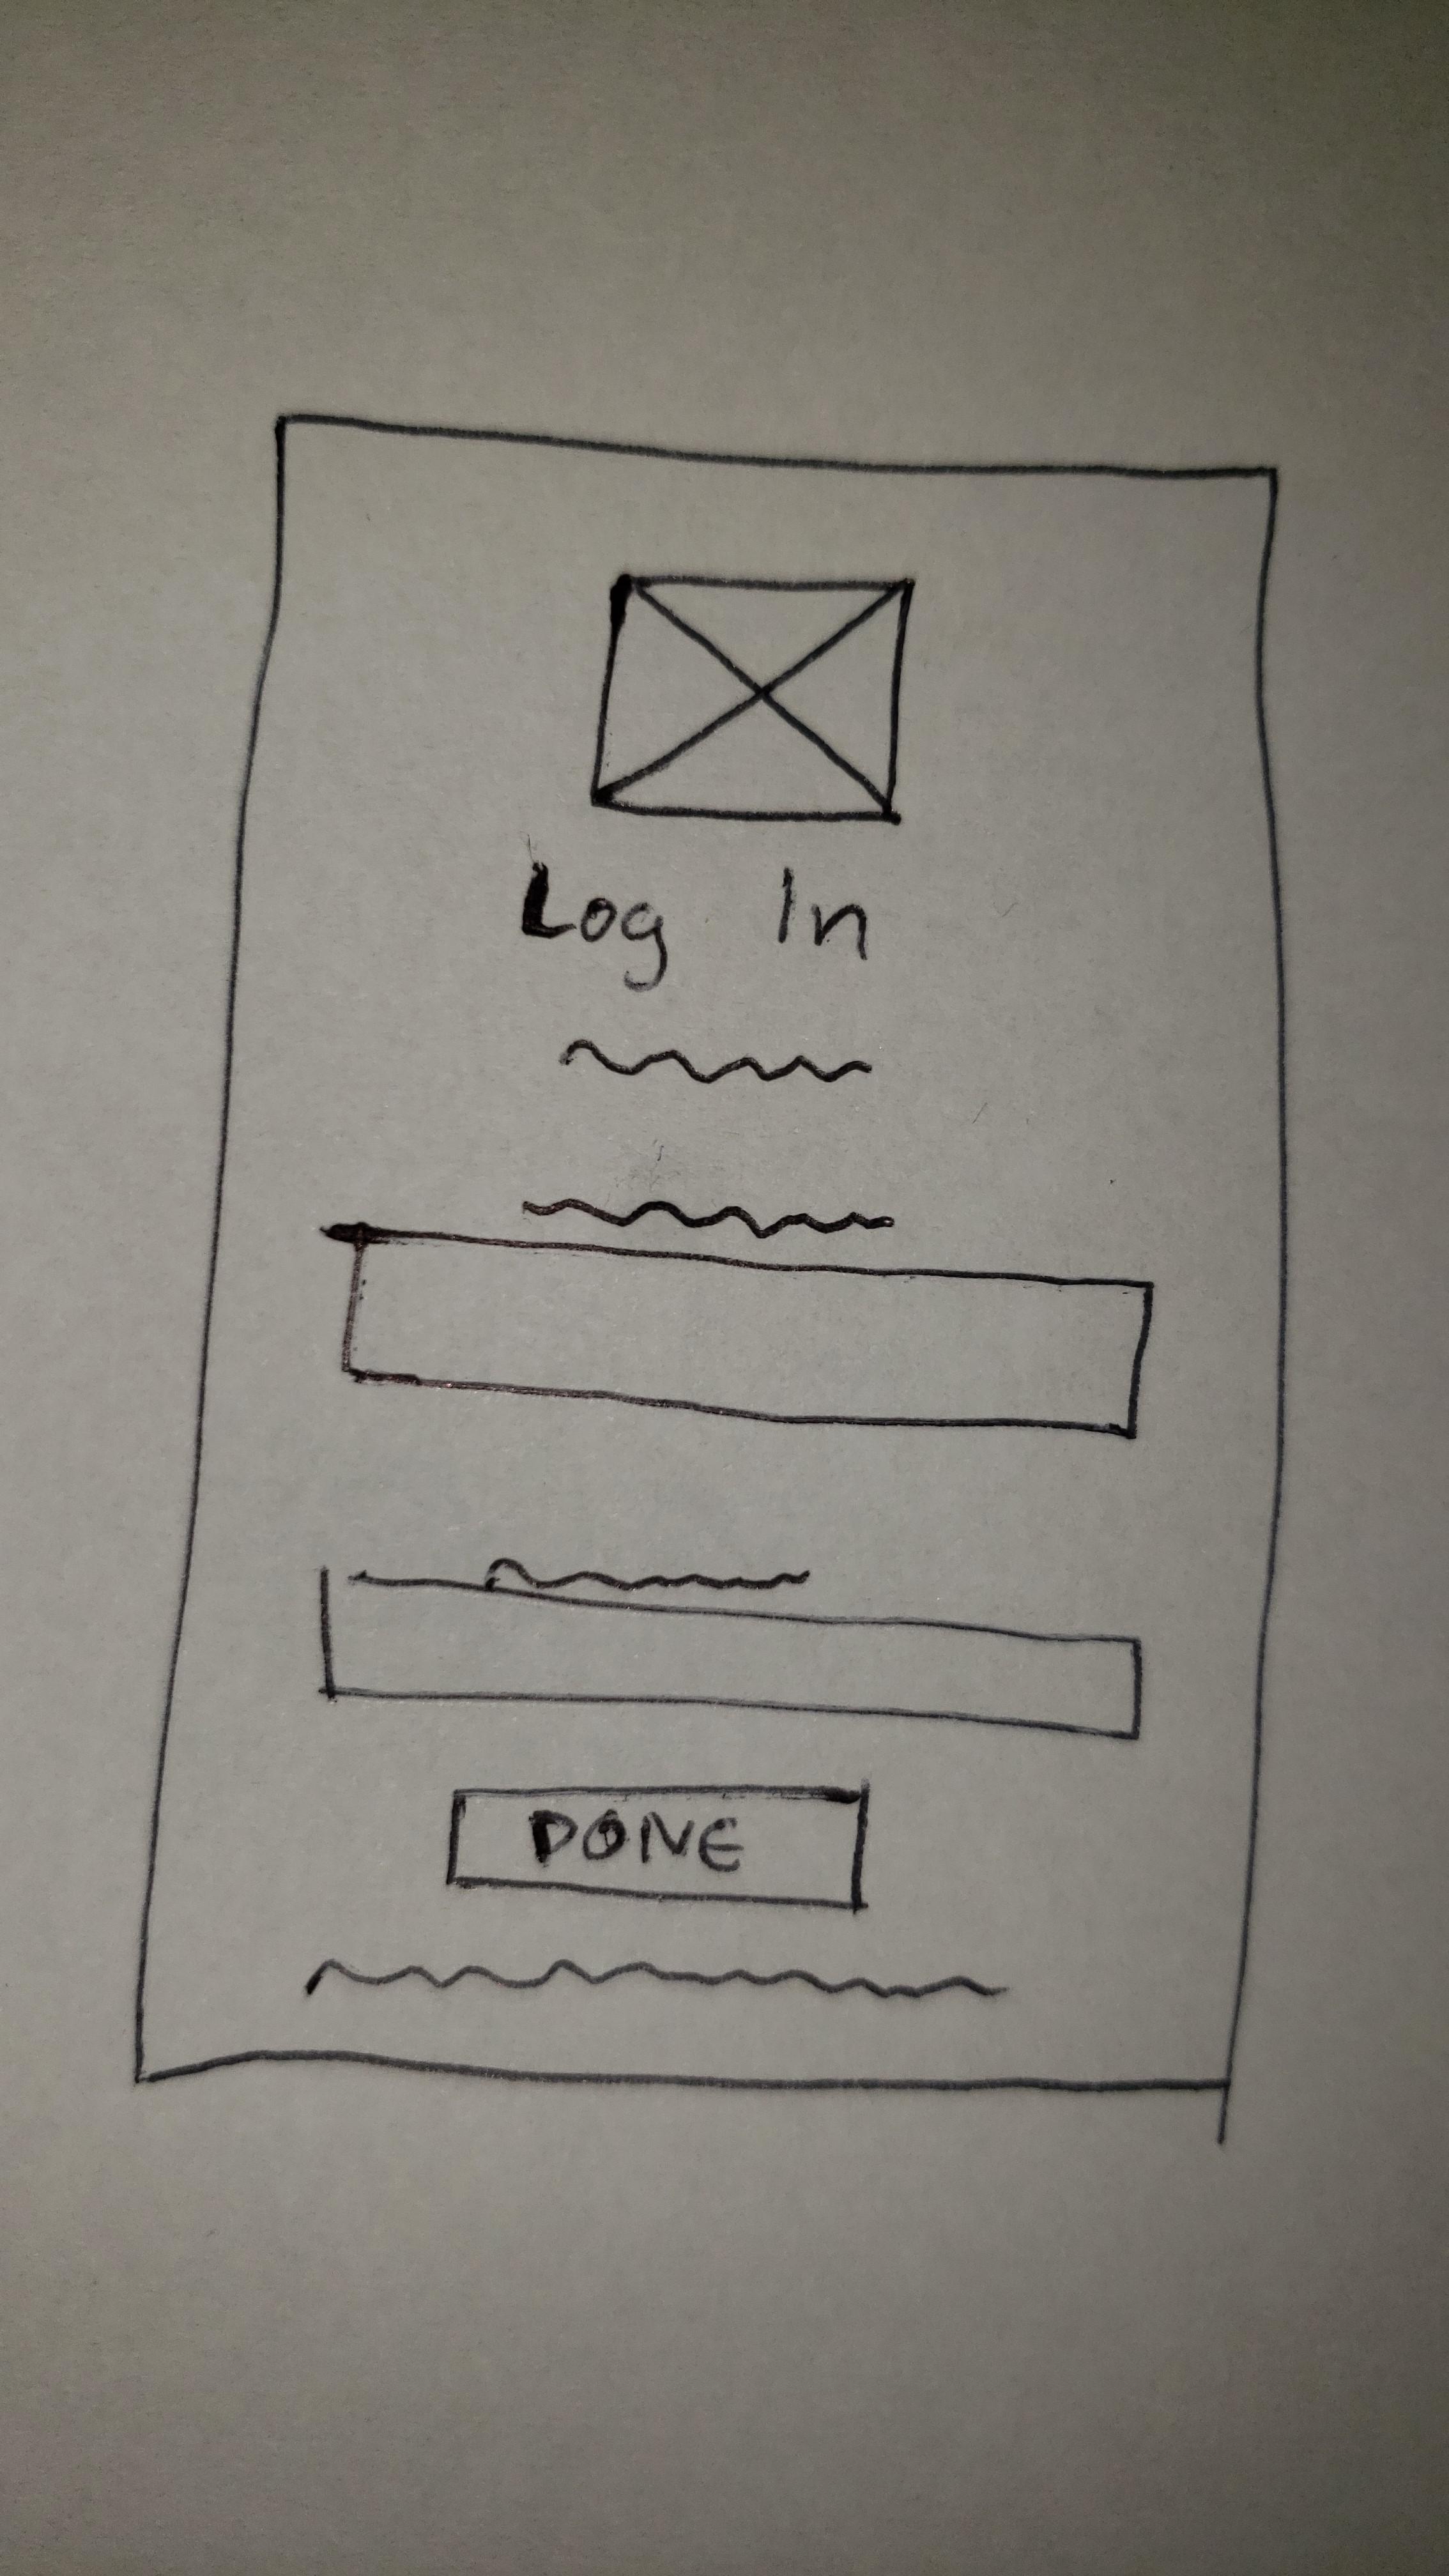 Log In
DONE